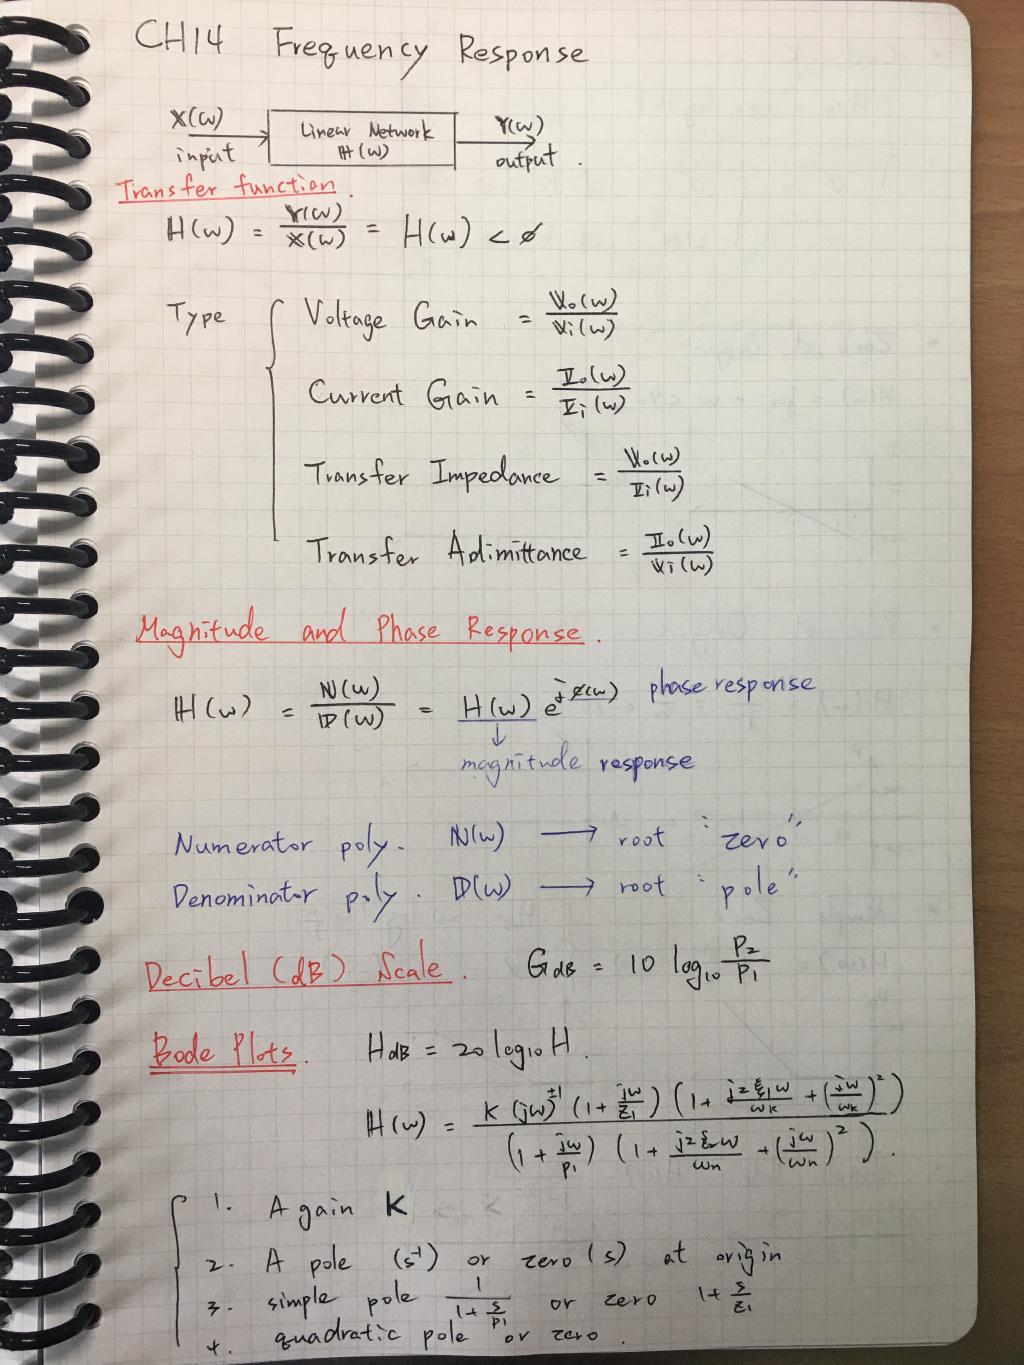 CH14 Frequency Response
X(ω) input Linear Network H(ω) Y(ω) output .
Transfer function .
H(ω) = Y(ω)/X(ω) = H(ω) < ø
Type Voltage Gain = Vo(ω)/Vi(ω)
Current Gain = Io(ω)/Ii(ω)
Transfer Impedance = Vo(ω)/Ii(ω)
Transfer Adimittance = Io(ω)/Vi(ω)
Magnitude and Phase Response .
H(ω) = N(ω)/D(ω) = H(ω) e^jø(ω) phase response
↓
magnitude response
Numerator poly. N(ω) → root "zero"
Denominator poly. D(ω) → root "pole"
Decibel (dB) Scale . GdB = 10 log10 P2/P1
Bode Plots . HdB = 20 log10 H .
H(ω) = K (jω)^±1 (1 + jω/z1) (1 + j2ξ1ω/ωk + (jω/ωk)^2) / (1 + jω/p1) (1 + j2ξ2ω/ωn + (jω/ωn)^2) .
1. A gain K
2. A pole (s^-1) or zero (s) at origin
3. simple pole 1/(1 + s/p1) or zero 1 + s/z1
4. quadratic pole or zero .